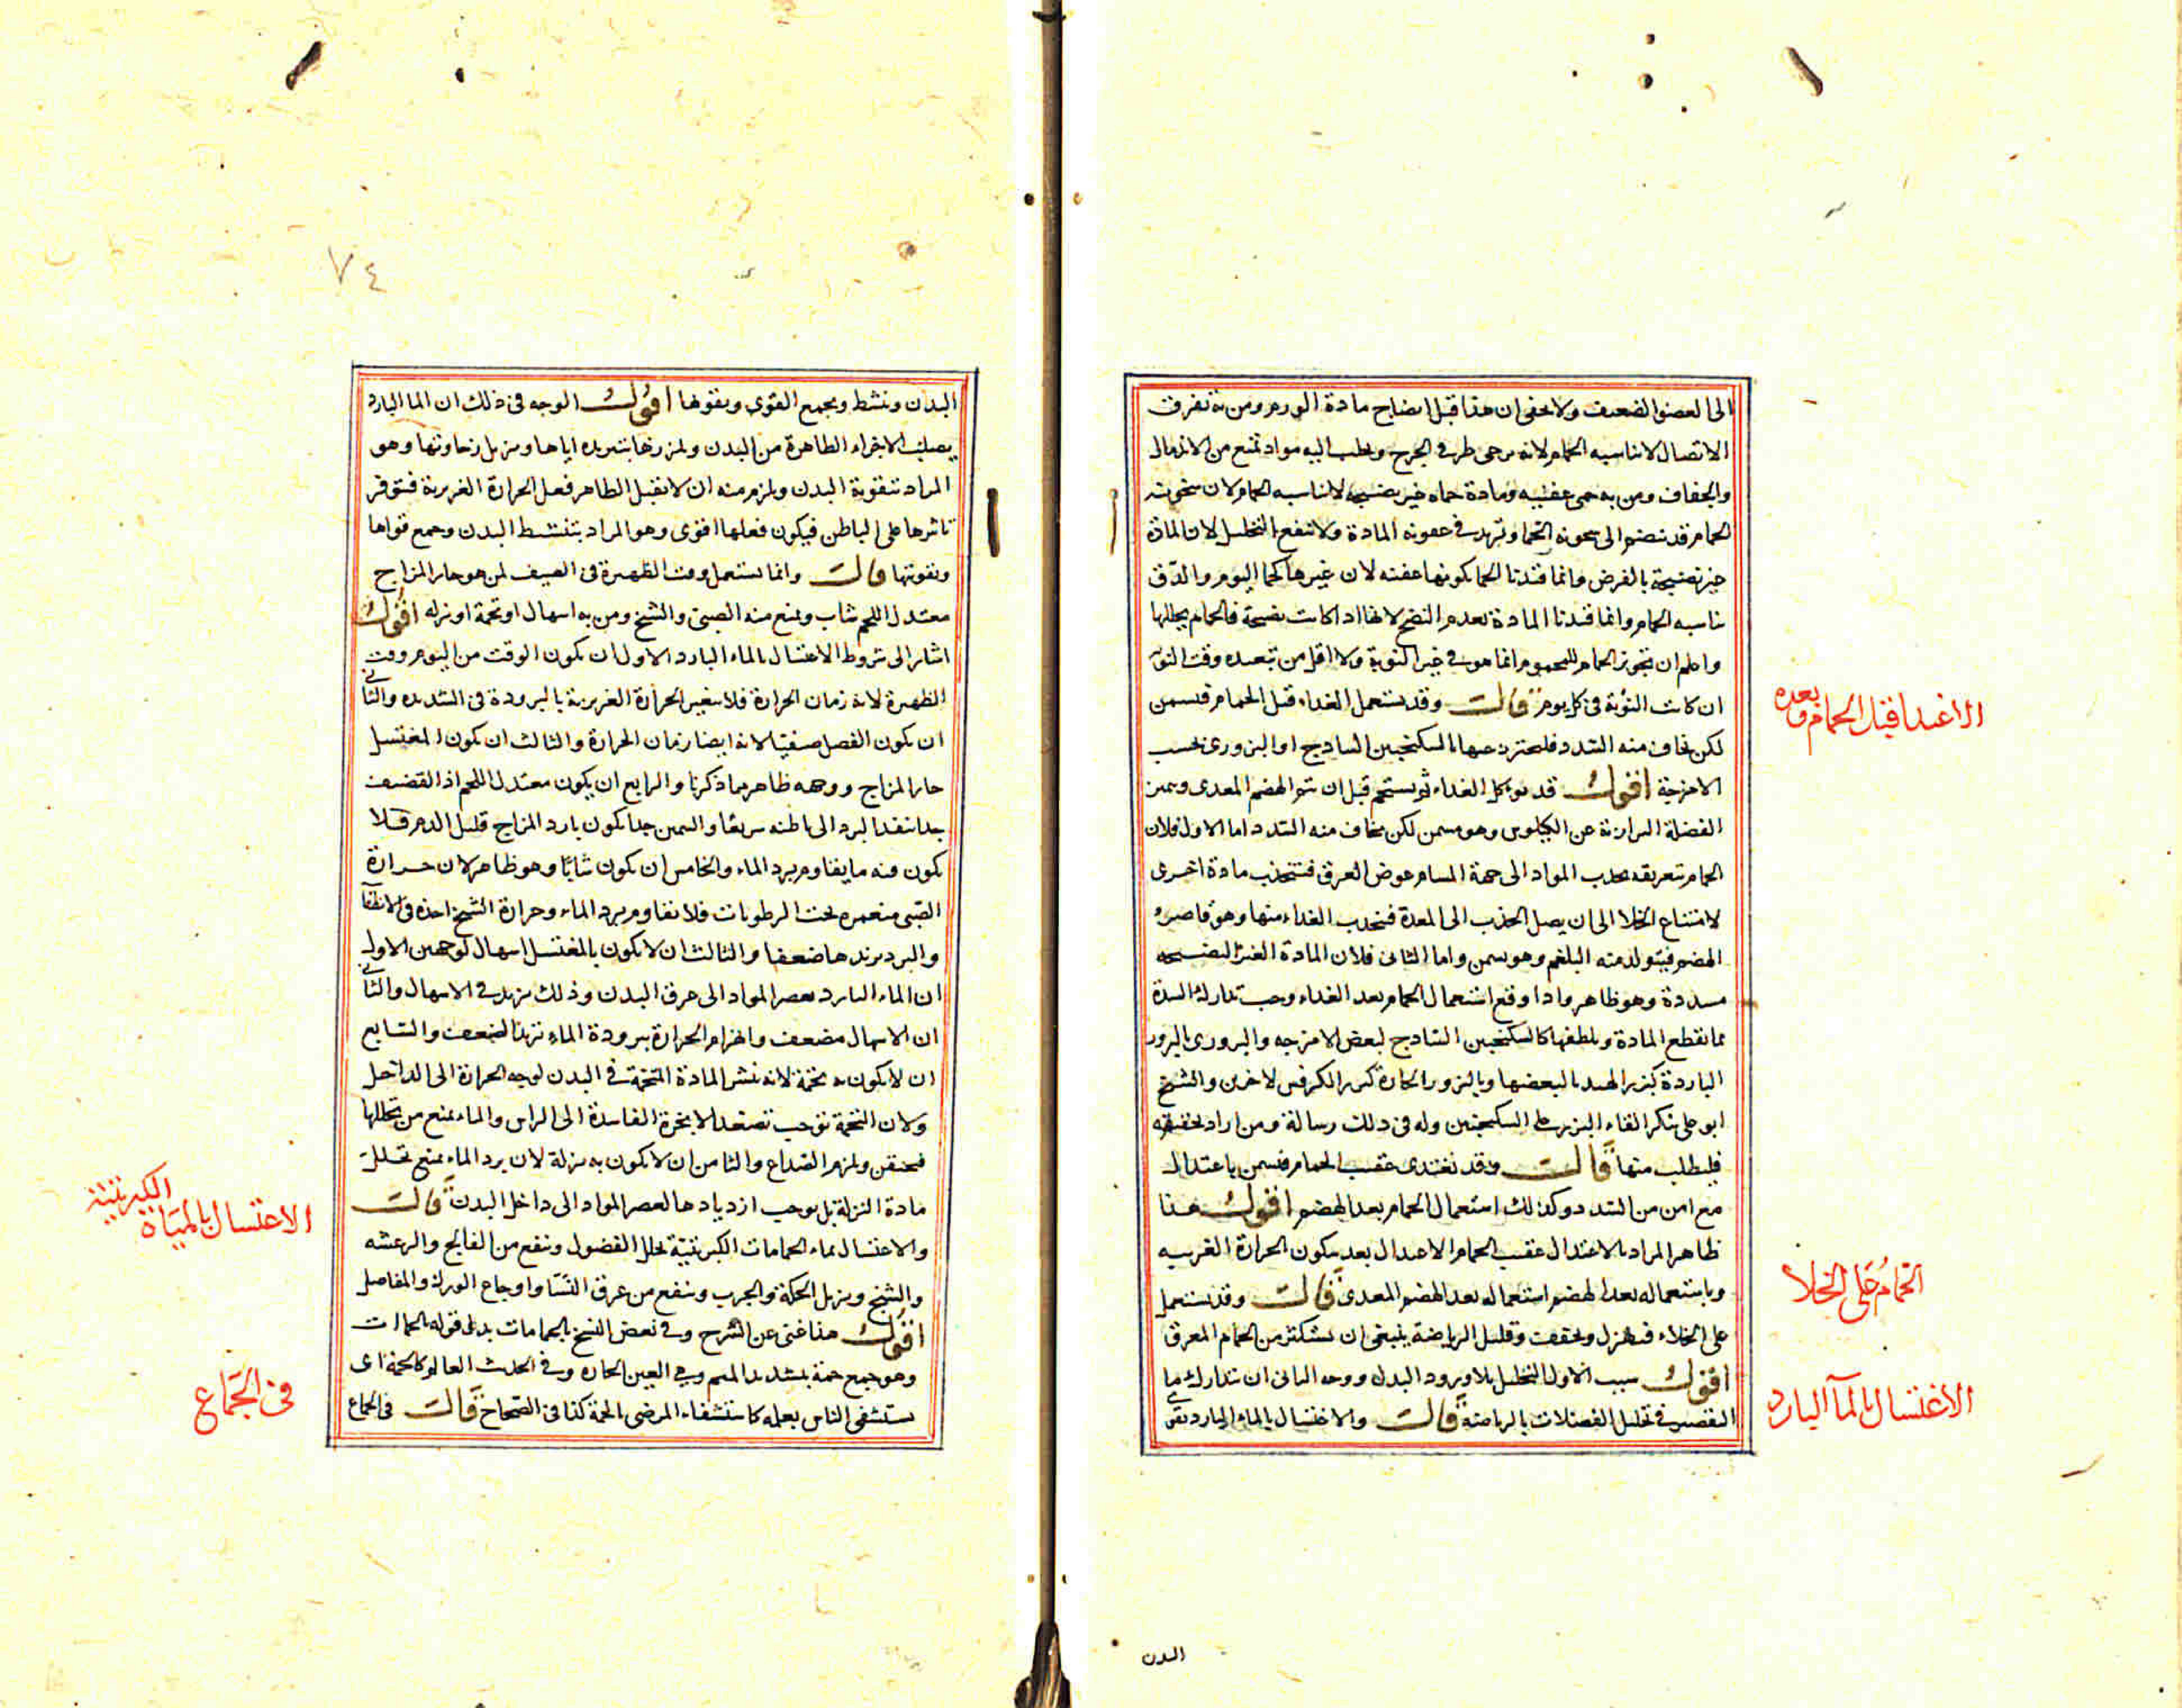 الى العضو الضعيف ولا يخفى ان هذا قبل انضاج مادة الورم ومن به تفرق
الاتصال لا يناسبه الحمام لانه يرخى طرفى الجرح ويجلب اليه مواد تمنع من الاندمال
والجفاف ومن به حمى عفنيه ومادة حماه غير نضيجه لا يناسبه الحمام لان سخونت
الحمام قد تنضم الى سخونة الحما وتزيد فى عفونة المادة ولا ينفع التحليل لان المادة
غير نضيجة بالفرض وانما قيدنا الحما بكونها عفنه لان غيرها كحما اليوم والدق
يناسبه الحمام وانما قيدنا المادة بعدم النضج لانها اذا كانت نضيجة فالحمام يحللها
واعلم ان تجويز الحمام للمحموم انما هو فى غير النوبة ولا اقل من تبعيده وقت النوبه
ان كانت النوبة فى كل يوم قالت وقد يستعمل الغداء قبل الحمام فيسمن
لكن يخاف منه السدد فليحترز عنها بالسكنجبين الساذج او البزورى بحسب
الامزجة اقول قد يوكل الغداء ثم يستحم قبل ان يتم الهضم المعدى ويميز
الفضلة البرازية عن الكيلوس وهو مسمن لكن يخاف منه السدد اما الاول فلان
الحمام بتعريقه يجذب المواد الى جهة المسام عوض العرق فتنجذب مادة اخرى
لامتناع الخلا الى ان يصل الجذب الى المعدة فينجذب الغداء منها وهو قاصر
الهضم فيتولد منه البلغم وهو يسمن واما الثانى فلان المادة الغير النضيجه
مسددة وهو ظاهر واذا وقع استعمال الحمام بعد الغداء وجب تدارك السدة
بما يقطع المادة ويلطفها كالسكنجبين الساذج لبعض الامزجه والبزورى بالبزور
الباردة كبزر الهندبا لبعضها وبالبزور الحارة كبزر الكرفس لاخرين والشيخ
ابو على ينكر القاء البزر على السكنجبين وله فى ذلك رسالة ومن اراد تحقيقه
فليطلب منها قالت وقد يغتدى عقيب الحمام فيسمن باعتدال
مع امن من السدد وكذلك استعمال الحمام بعد الهضم اقول هذا
ظاهر المراد بالاغتدا عقيب الحمام الاغتدا بعد سكون الحرارة الغريبه
وباستعماله بعد الهضم استعماله بعد الهضم المعدى قالت وقد يستعمل
على الخلاء فيهزل ويجفف وقليل الرياضة ينبغى ان يستكثر من الحمام المعرق
اقول سبب الاول التحليل بلا ورود البدل ووجه الثانى ان يتدارك ما
التقصير فى تحليل الفضلات بالرياضة قالت والاغتسال بالماء البارد يقوى
البدن
الاغتدا قبل الحمام وبعده
الحمام على الخلا
الاغتسال بالمآ البارد
٧٤
البدن وينشط ويجمع القوى ويقويها اقول الوجه فى ذلك ان الما البارد
يصلب الاجزاء الظاهرة من البدن ويلززها بتبريده اياها ويزيل رخاوتها وهو
المراد بتقوية البدن ويلزم منه ان لا يقبل الظاهر فعل الحرارة الغريزية فيتوفر
تاثيرها على الباطن فيكون فعلها اقوى وهو المراد بتنشيط البدن وجمع قواها
وتقويتها قالت وانما يستعمل وقت الظهيرة فى الصيف لمن هو حار المزاج
معتدل اللحم شاب ويمنع منه الصبى والشيخ ومن به اسهال او تخمة او نزله اقول
اشار الى شروط الاغتسال بالماء البارد الاول ان يكون الوقت من اليوم وقت
الظهيرة لانه زمان الحرارة فلا يغير الحرارة الغريزية بالبرودة فى الشديده والثانى
ان يكون الفصل صيفيا لانه ايضا زمان الحرارة والثالث ان يكون المغتسل
حار المزاج ووجهه ظاهر مما ذكرنا والرابع ان يكون معتدل اللحم اذ القضيف
جدا ينفذ البرد الى باطنه سريعا والسمين جدا يكون بارد المزاج قليل الدم فلا
يكون فيه ما يقاوم برد الماء والخامس ان يكون شابا وهو ظاهر لان حرارة
الصبى منغمره تحت الرطوبات فلا تقاوم برد الماء وحرارة الشيخ اخذه فى الانطفا
والبرد يزيدها ضعفا والثالث ان لا يكون بالمغتسل اسهال لوجهين الاول
ان الماء البارد يعصر المواد الى عرق البدن وذلك يزيد فى الاسهال والثانى
ان الاسهال مضعف وانهزام الحرارة ببرودة الماء تزيد الضعف والسابع
ان لا يكون به تخمة لانه ينشر المادة التخمة فى البدن لوجه الحرارة الى الداخل
ولان التخمة توجب تصعد الابخرة الفاسدة الى الراس والماء يمنع من تحللها
فيحتقن ويلزم الصداع والثامن ان لا يكون به نزلة لان برد الماء يمنع تحلل
مادة النزلة بل يوجب ازديادها لعصر المواد الى داخل البدن قالت
والاغتسال بماء الحمامات الكبريتية يحلل الفضول وينفع من الفالج والرعشه
والتشنج ويزيل الحكة والجرب وينفع من عرق النسا واوجاع الورك والمفاصل
اقول هذا غنى عن الشرح وفى بعض النسخ بالحمامات بدل قوله الحمات
وهو جمع حمة بتشديد الميم وهى العين الحاره وفى الحدث العالم كالحمة اى
يستشفى الناس بعلمه كاستشفاء المرضى بالحمة كذا فى الصحاح قالت فى الجماع
الاغتسال بالمياه الكبريتية
فى الجماع